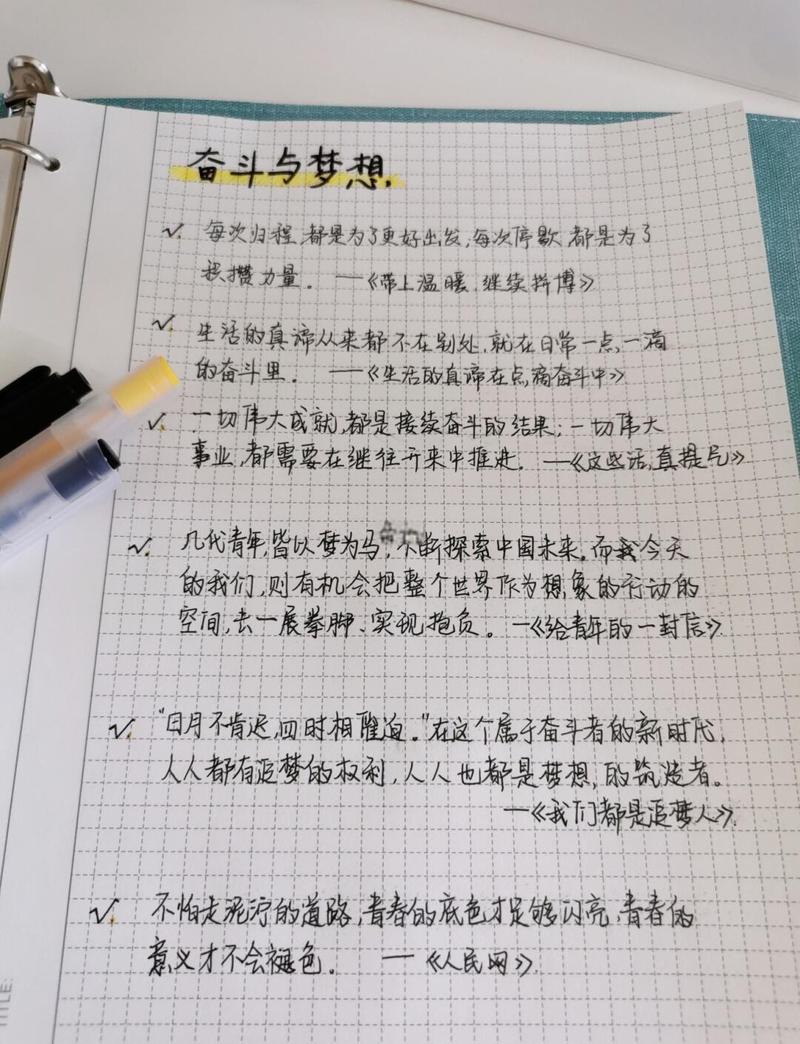 奋斗与梦想.
✓. 每次归程,都是为了更好出发,每次停歇,都是为了
积攒力量。 ——《带上温暖,继续拼博》
✓. 生活的真谛从来都不在别处,就在日常一点,一滴
的奋斗里。 ——《生活的真谛在点滴奋斗中》
✓. 一切伟大成就,都是接续奋斗的结果;一切伟大
事业,都需要在继往开来中推进。 —《这些话,真提气》
✓. 几代青年,皆以梦为马,不断探索中国未来。而我今天
的我们,则有机会把整个世界作为想象的行动的
空间,去一展拳脚、实现抱负。 —《给青年的一封信》.
✓. "日月不肯迟,四时相催迫。"在这个属于奋斗者的新时代,
人人都有追梦的权利,人人也都是梦想,的筑造者。
—《我们都是追梦人》.
✓. 不怕走泥泞的道路,青春的底色才足够闪亮,青春的
意义才不会褪色。 —《人民网》.
TITLE: